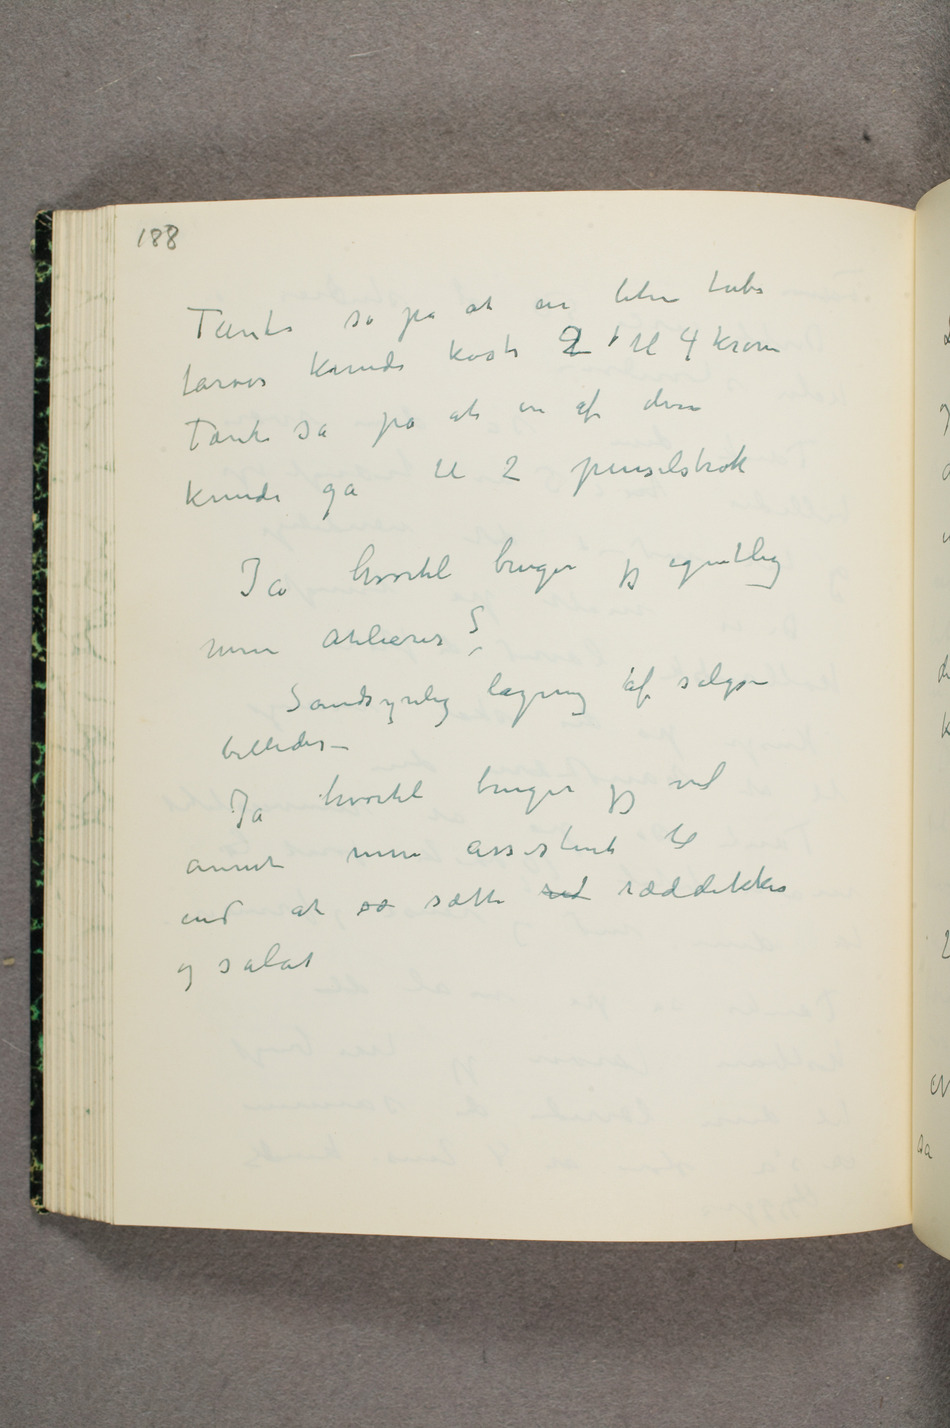 188
Tænk så på at en liten tube
farver kunde koste 2 til 4 kroner
Tænk så på at en af dem
kunde gå til 2 penselstrøk
Ja hvortil bruger jeg egentlig
mine Atelierer?
Sandsynlig lagring af salgs-
billeder –
Ja hvortil bruger jeg vel
annet mine assistent til
end at sæ sætte red ræddikker
og salat